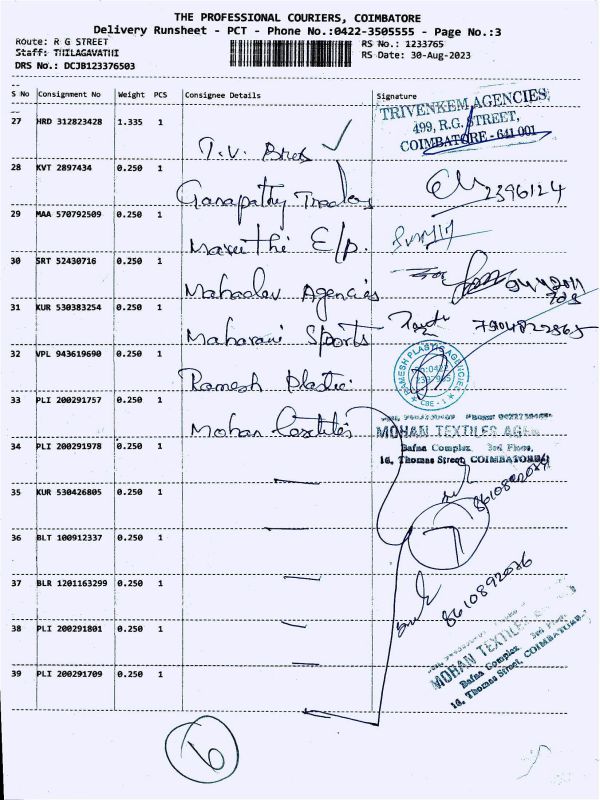 THE PROFESSIONAL COURIERS, COIMBATORE
Delivery Runsheet - PCT - Phone No.:0422-3505555 - Page No.:3
Route: R G STREET RS No.: 1233765
Staff: THILAGAVATHI RS Date: 30-Aug-2023
DRS No.: DCJB123376503
S No Consignment No Weight PCS Consignee Details Signature
27 HRD 312823428 1.335 1 T.V. Bros
TRIVENKEM AGENCIES
499, R.G. STREET,
COIMBATORE - 641 001
28 KVT 2897434 0.250 1 Ganapathy Traders 2396124
29 MAA 570792509 0.250 1 Maruthi E/p.
30 SRT 52430716 0.250 1 Mahadev Agencies
31 KUR 530383254 0.250 1 Maharani Sports
32 VPL 943619690 0.250 1 Ramesh Plastic
RAMESH PLASTIC AGENCIES
CBE - 1
33 PLI 200291757 0.250 1 Mohan Textiles
MOHAN TEXTILES
Bafna Complex 3rd Floor,
16, Thomas Street, COIMBATORE
34 PLI 200291978 0.250 1
35 KUR 530426805 0.250 1
36 BLT 100912337 0.250 1
37 BLR 1201163299 0.250 1
8610892076
38 PLI 200291801 0.250 1
MOHAN TEXTILES
Bafna Complex 3rd Floor
16, Thomas Street, COIMBATORE
39 PLI 200291709 0.250 1
6